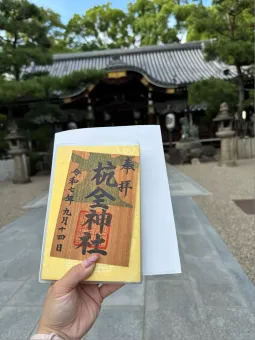 奉拝
杭全神社
令和七年九月十四日